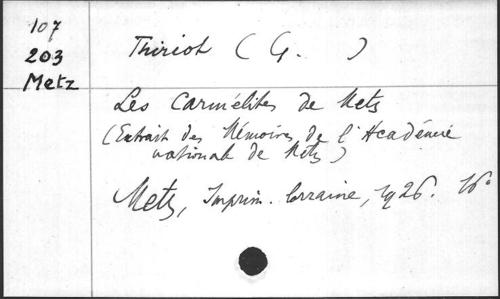 107
203
Metz
Thiriot ( G. )
Les Carmélites de Metz
(Extrait des Mémoires de l'Académie
national de Metz)
Metz, Imprim. lorraine, 1926. 16°